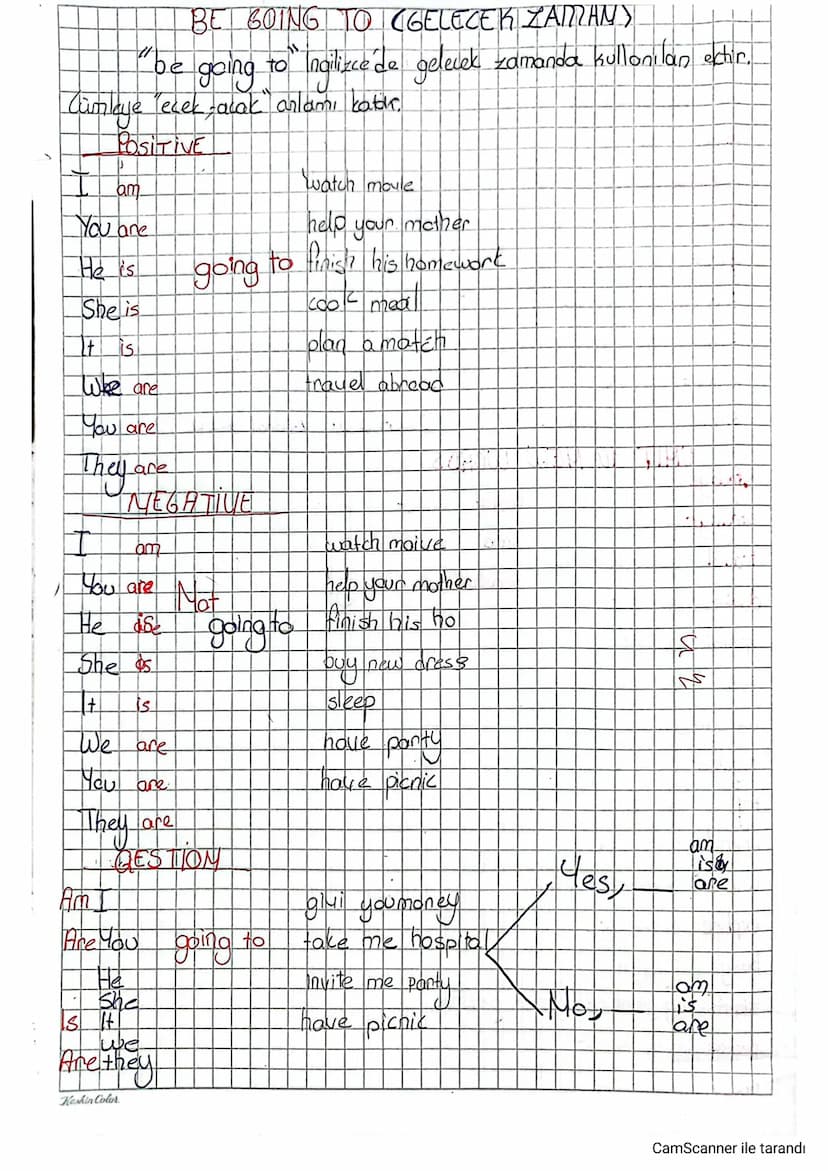 BE GOING TO (GELECEK ZAMAN)
"be going to" İngilizce'de gelecek zamanda kullanılan ektir.
Cümleye "ecek, acak" anlamı katar.
POSİTİVE
I am watch movie
You are help your mother
He is going to finish his homework
She is cook meal
It is plan a match
We are travel abroad
You are
They are
NEGATİVE
I am watch moive
You are Not help your mother
He is going to finish his ho
She is buy new dress
It is sleep
We are have party
You are have picnic
They are
QESTİON
am
Yes, is
are
Am I givi you money
Are You going to take me hospital
He invite me party
She
Is It have picnic
We
Are they
am
No, is
are
Keskin Color
CamScanner ile tarandı